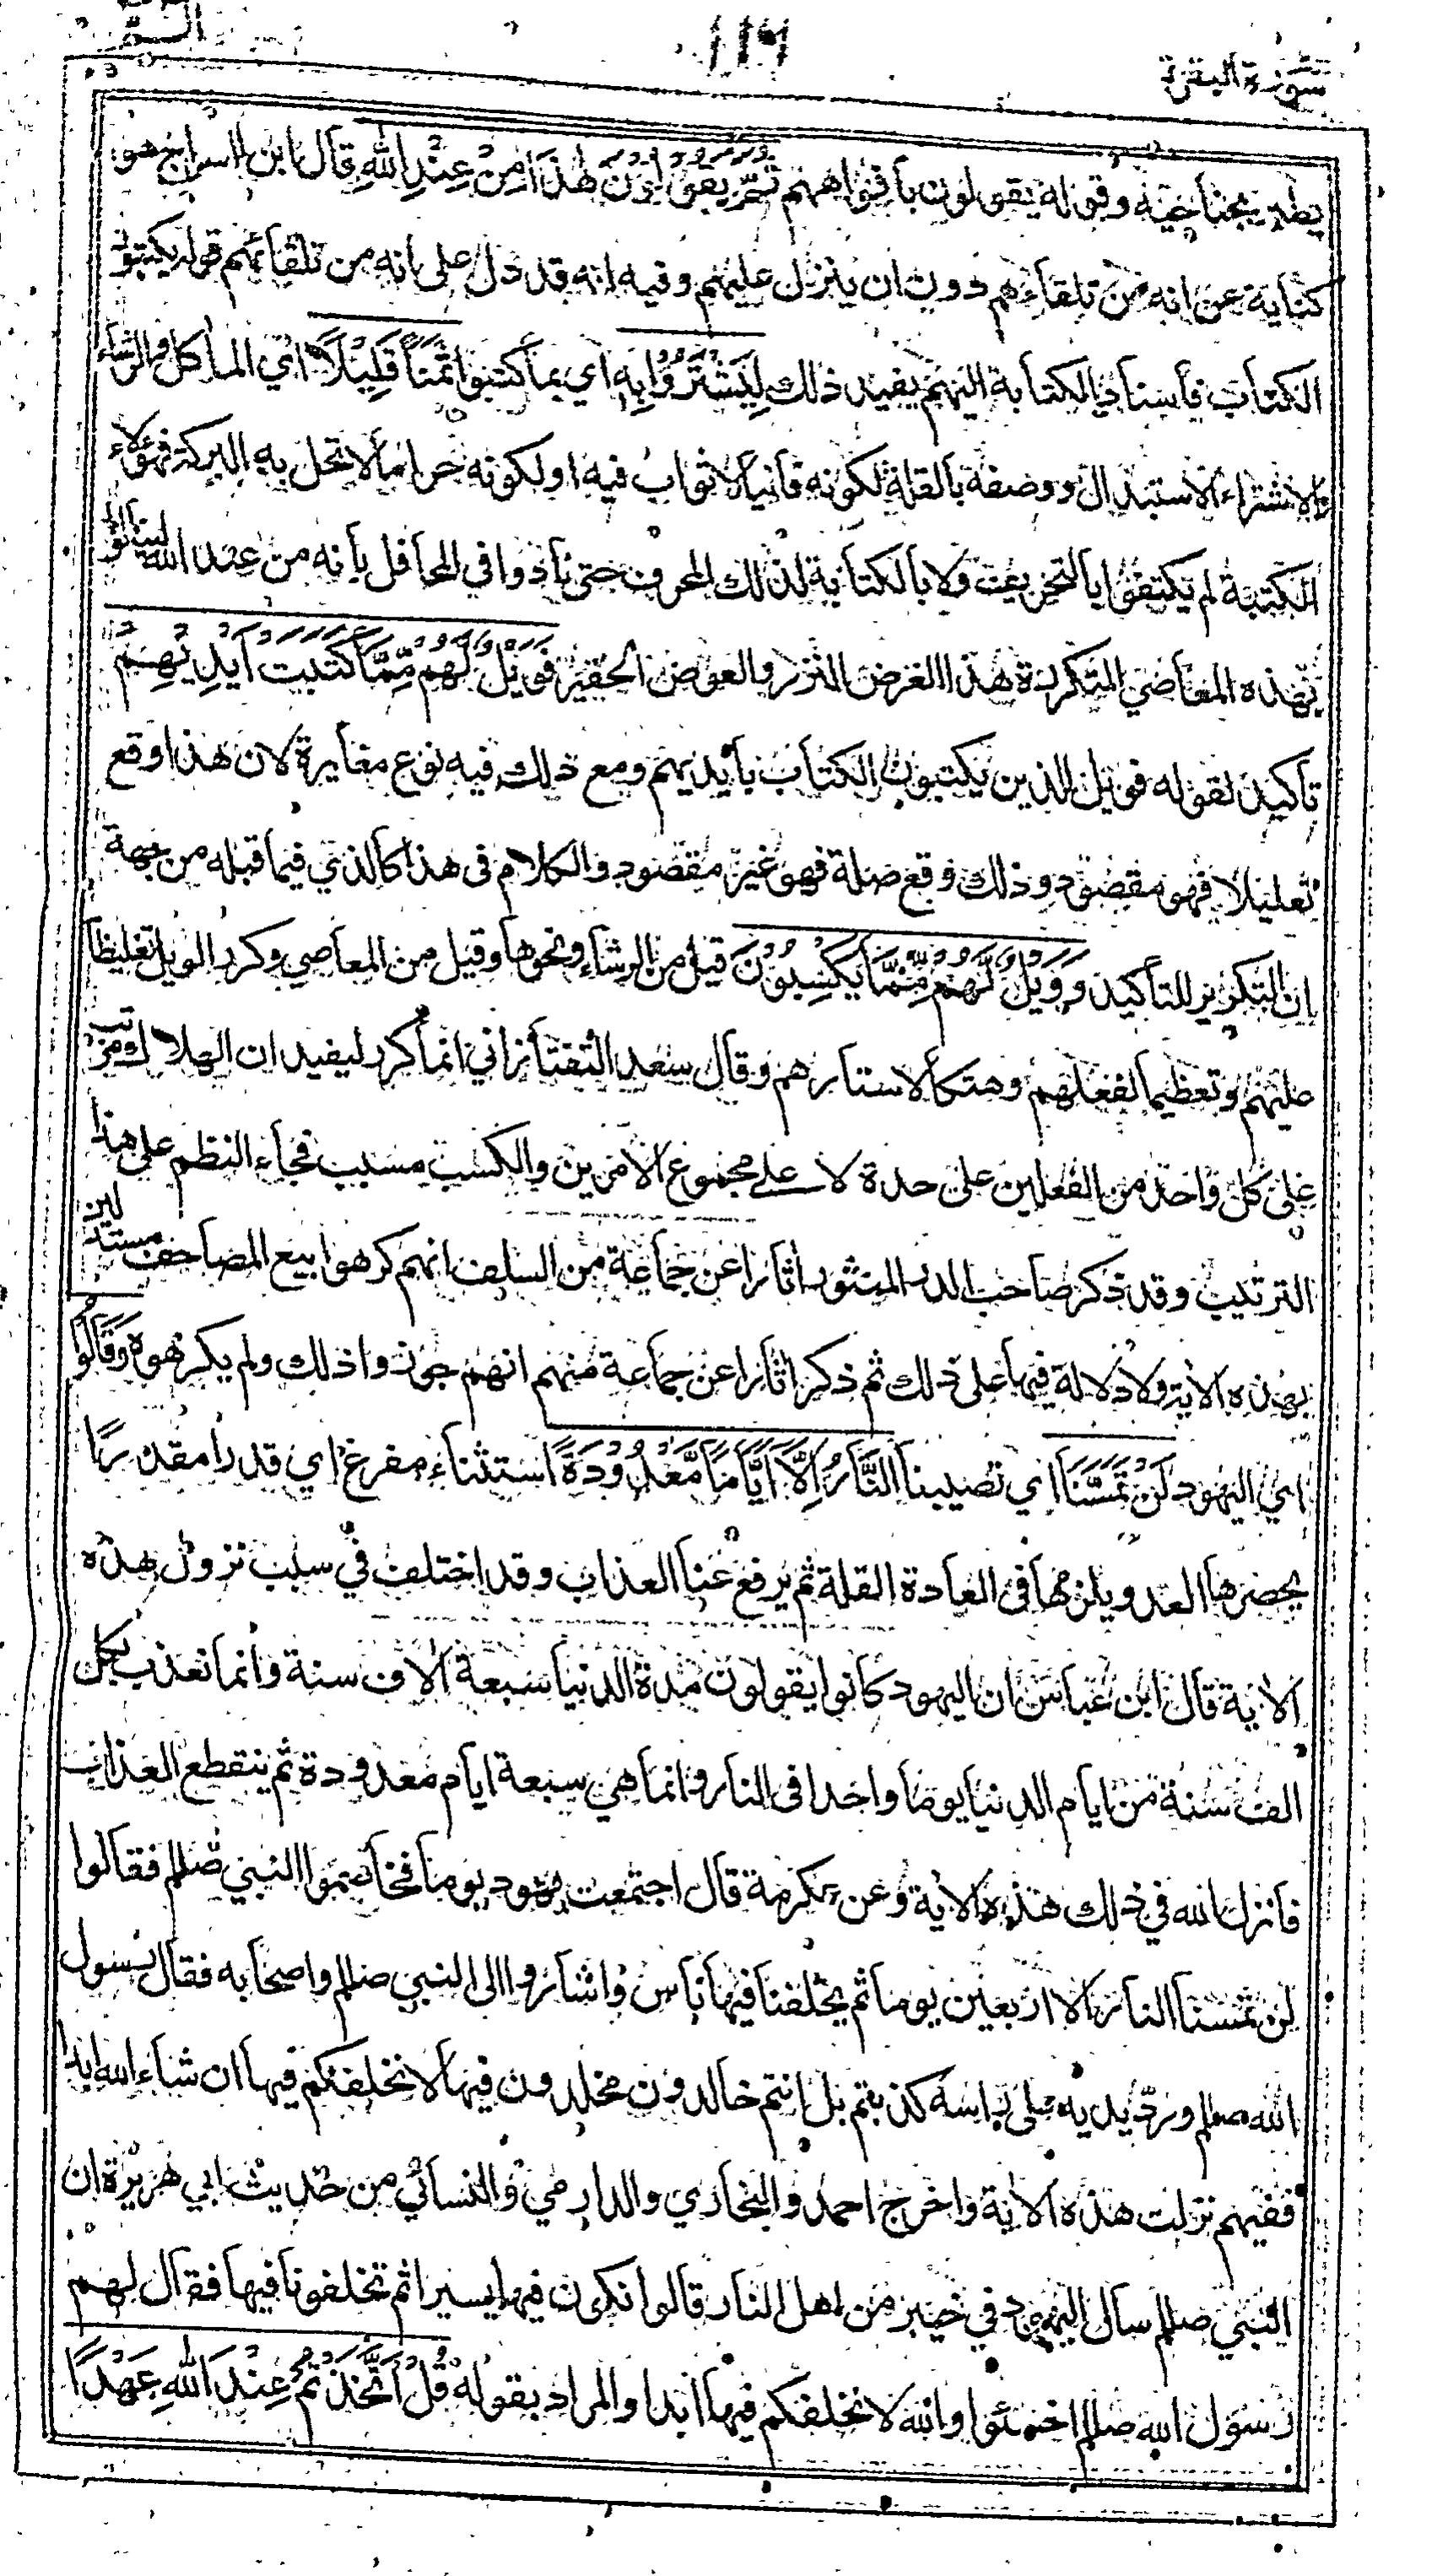 سورة البقرة
١١٦
الـمّ
يطير بجناحيه وقوله يقولون بأفواههم ثُمَّ يَقُوْلُوْنَ هٰذَا مِنْ عِنْدِ اللّٰهِ قال ابن السراج هو
كناية عن انه من تلقاءهم دون ان ينزل عليهم وفيه انه قد دل على انه من تلقائهم قوله يكتبون
الكتاب فأسناد الكتابة اليهم يفيد ذلك لِيَشْتَرُوْا بِهٖ اي بما كتبوا ثَمَنًا قَلِيْلًا اي المأكل والرشاء
والاشتراء الاستبدال ووصفه بالقلة لكونه فانيا لا ثواب فيه او لكونه حراما لا تحل به البركة فهؤلاء
الكتبة لم يكتفوا بالتحريف ولا بالكتابة لذلك المحرف حتى نادوا في المحافل بانه من عند الله لينالوا
بهذه المعاصي المتكررة هذا الغرض النزر والعوض الحقير فَوَيْلٌ لَّهُمْ مِّمَّا كَتَبَتْ أَيْدِيْهِمْ
تأكيد لقوله فويل للذين يكتبون الكتاب بأيديهم ومع ذلك فيه نوع مغايرة لان هذا وقع
تعليلا فهو مقصود وذلك وقع صلة فهو غير مقصود والكلام في هذا كالذي فيما قبله من جهة
ان التكرير للتأكيد وَوَيْلٌ لَّهُمْ مِّمَّا يَكْسِبُوْنَ قيل من الرشاء ونحوها وقيل من المعاصي وكرر الويل تغليظا
عليهم وتعظيما لفعلهم وهتكا لاستارهم وقال سعد التفتازاني انما كرر ليفيد ان الهلاك مرتب
على كل واحد من الفعلين على حدة لا على مجموع الامرين والكسب مسبب فجاء النظم على هذا
الترتيب وقد ذكر صاحب الدر المنثور اثارا عن جماعة من السلف انهم كرهوا بيع المصاحف مستدلين
بهذه الآية ولا دلالة فيها على ذلك ثم ذكر اثارا عن جماعة منهم انهم جوزوا ذلك ولم يكرهوه وَقَالُوْا
اي اليهود لَنْ تَمَسَّنَا اي تصيبنا النَّارُ إِلَّا أَيَّامًا مَّعْدُوْدَةً استثناء مفرغ اي قدرا مقدرا
يحضرها العد ويلزمها في العادة القلة ثم يرفع عنا العذاب وقد اختلف في سبب نزول هذه
الاية قال ابن عباس ان اليهود كانوا يقولون مدة الدنيا سبعة آلاف سنة وانما نعذب بكل
الف سنة من ايام الدنيا يوما واحدا في النار وانما هي سبعة ايام معدودة ثم ينقطع العذاب
فانزل الله في ذلك هذه الآية وعن عكرمة قال اجتمعت يهود يوما فخاصموا النبي صللم فقالوا
لن تمسنا النار الا اربعين يوما ثم يخلفنا فيها ناس واشاروا الى النبي صللم واصحابه فقال رسول
الله صللم ورد يديه على راسه كذبتم بل انتم خالدون مخلدون فيها لا نخلفكم فيها ان شاء الله ابدا
ففيهم نزلت هذه الاية واخرج احمد والبخاري والدارمي والنسائي من حديث ابي هريرة ان
النبي صللم سأل اليهود في خيبر من اهل النار قالوا نكون فيها يسيرا ثم تخلفونا فيها فقال لهم
رسول الله صللم اخسئوا والله لا نخلفكم فيها ابدا والمراد بقوله قُلْ أَتَّخَذْتُمْ عِنْدَ اللّٰهِ عَهْدًا